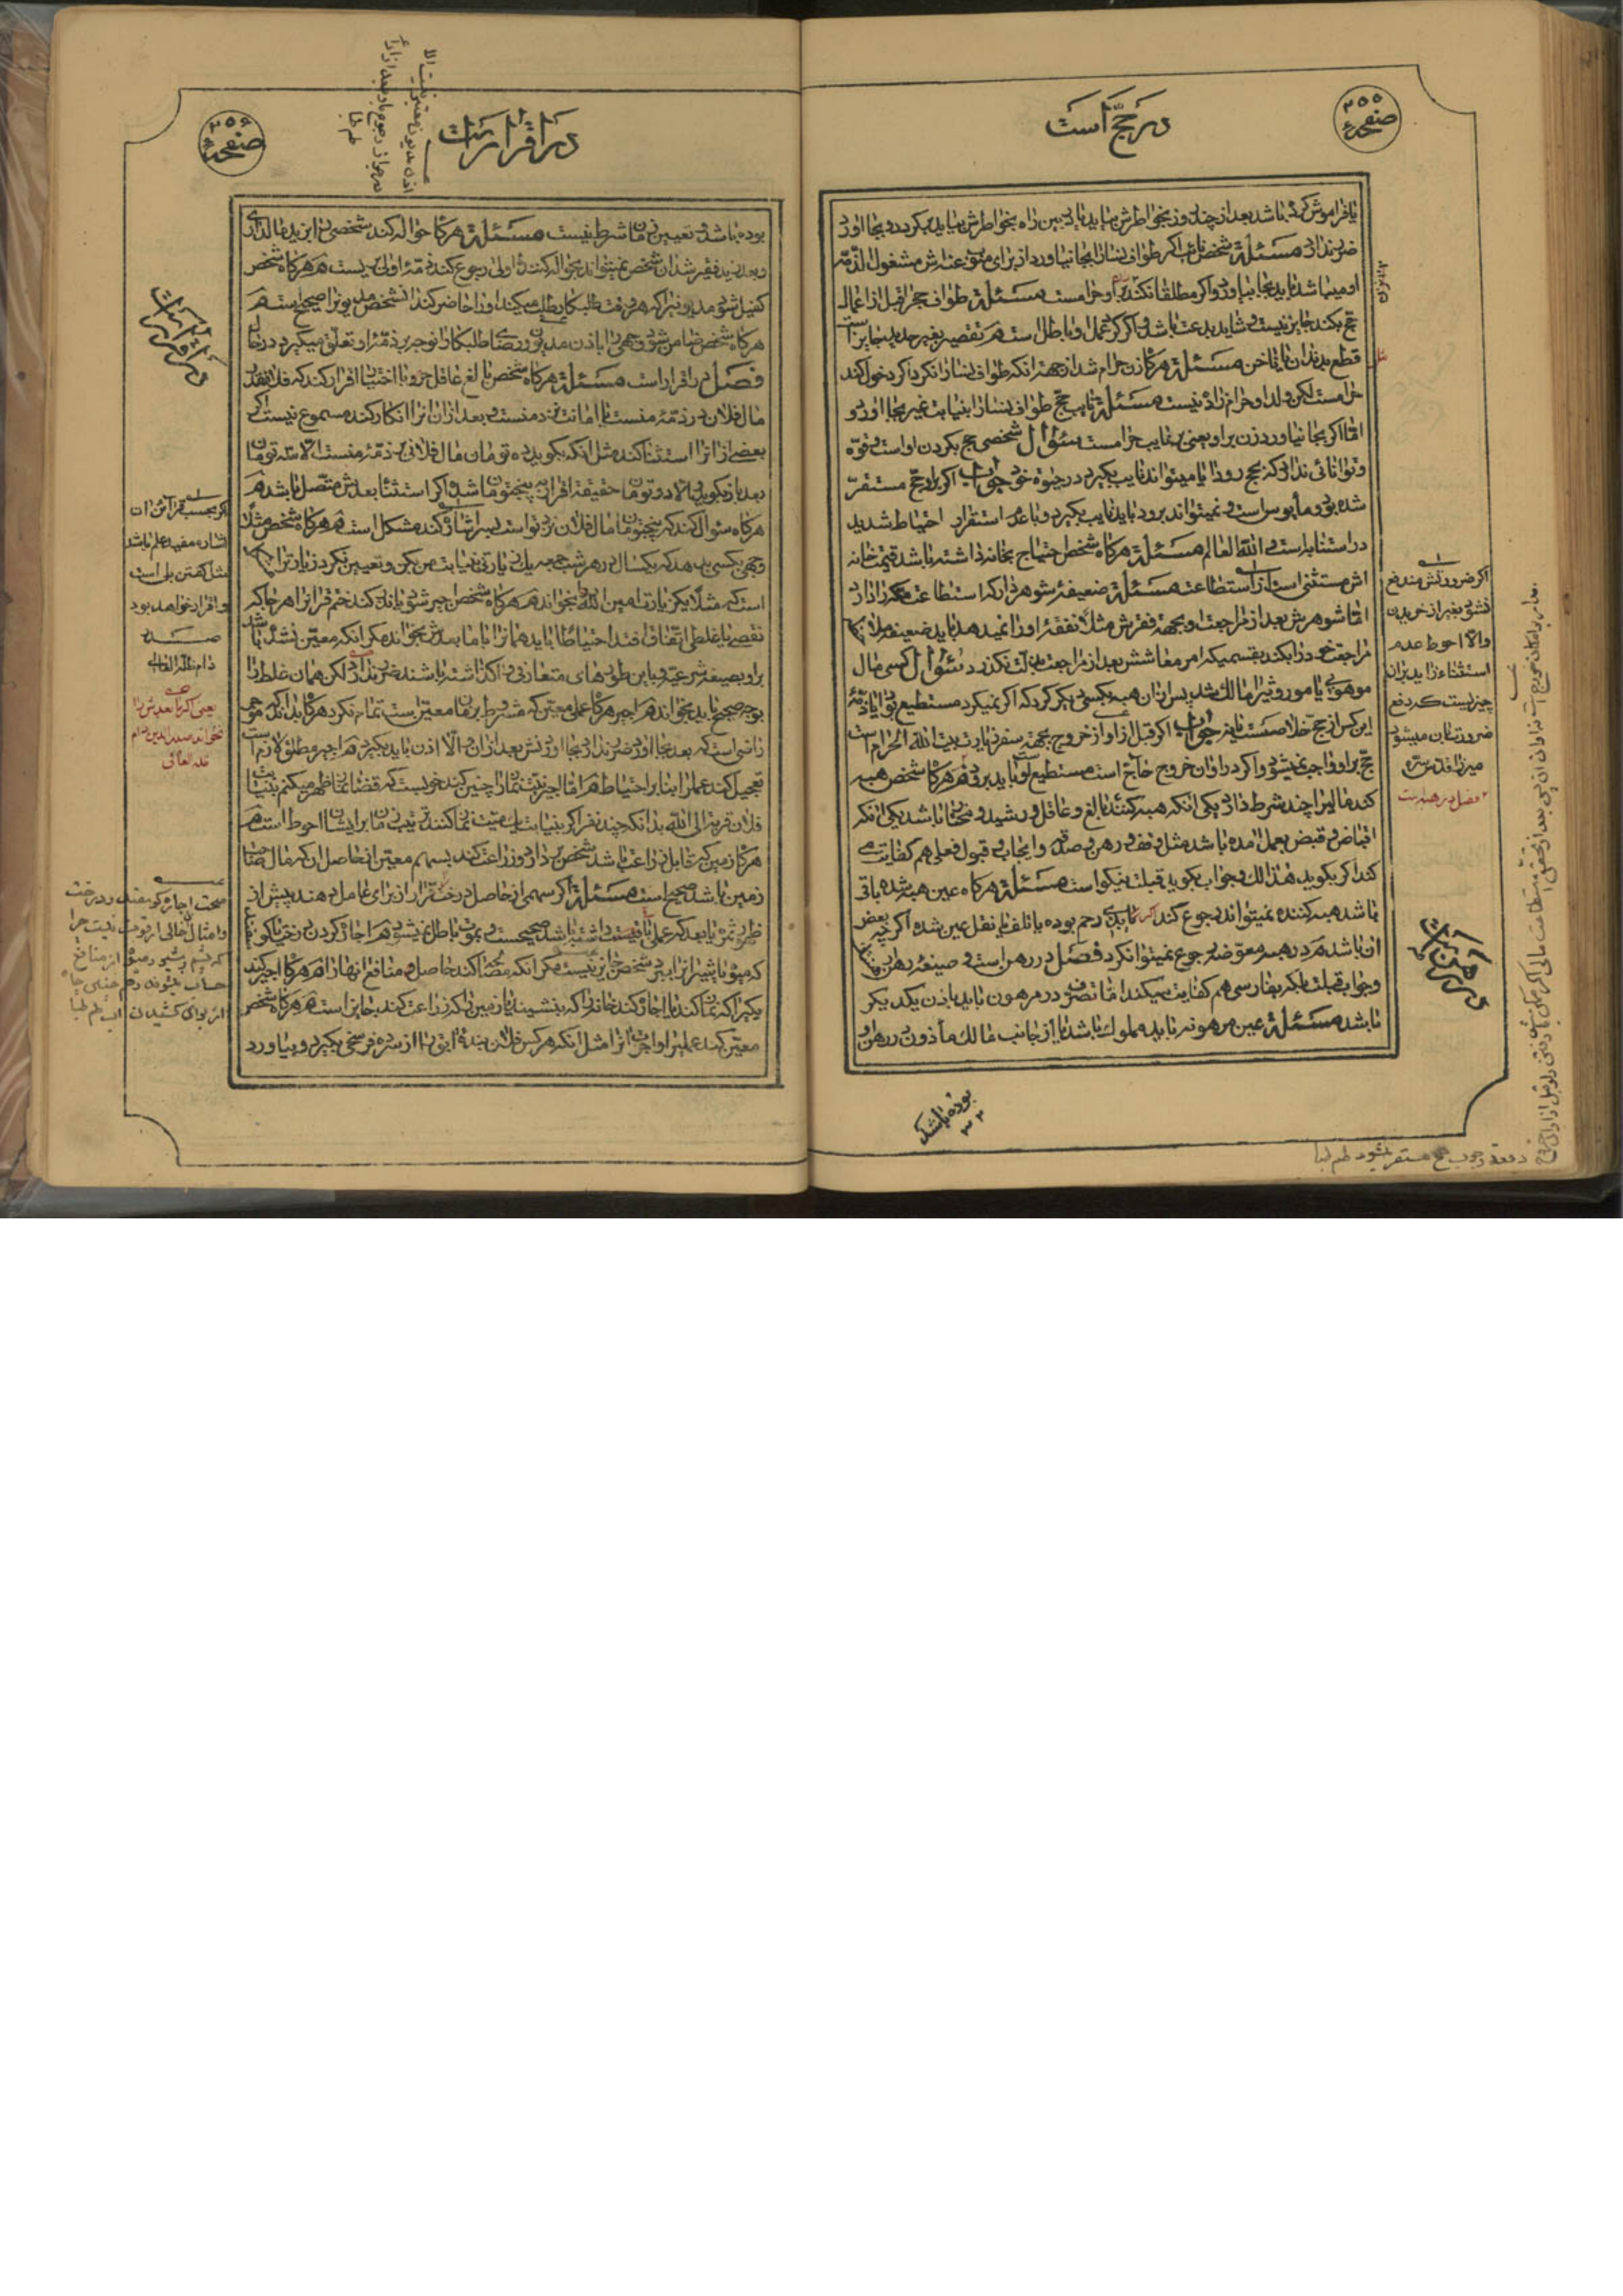 صفحه ۲۵۵
در حج است
یا فراموش کرده باشد بعد از چند روز بخواطرش بیاید یا در بین راه بخواطرش بیاید برگردد و بجا آورد
ضرر ندارد مسئلة شخص نائب اگر طواف نساء را بجا نیاورد از برای منوب عنه ذمه‌اش مشغول الذمه
او میباشد باید بجا بیاورد و اگر مطلقا نکند بر او حرامست مسئلة طواف حج را قبل از اعمال
حج بکند جایز نیست و شاید بدعت باشد و اگر کرد عمل او باطل است هر تقصیر بغیر حدید جایز است
قطع بدندان یا ناخن مسئلة هرگاه زن حرام شد از جهة آنکه طواف نساء را نکرد اگر دخول کند
حرامست لکن ولد او حرام زاده نیست مسئلة نایب حج طواف نساء را بنیابت غیر بجا آورد و
اما اگر بجا نیاورد زن بر او یعنی بر نایب حرامست سئوال شخصی حج بگردن او است و قوه
و توانائی ندارد که بحج رود آیا میتواند نایب بگیرد در حیوة خود جواب اگر بر او حج مستقر
شده بود و مأیوس است و نمیتواند برود باید نایب بگیرد و با عدم استقرار احتیاط شدید
در استنابه است و الله العالم مسئلة هرگاه شخص احتیاج بخانه داشته باشد قیمت خانه
اش مستثنی است از استطاعت مسئلة ضعیفهٔ شوهر دار که استطاعت مکه را دارد
اما شوهرش بعد از مراجعت او بجهة فقرش مثلا نفقهٔ او را نمیدهد باید ضعیفه ملاحظه
مراجعت خود را بکند بقسمیکه امر معاشش بعد از مراجعت بذلت نگذرد سئوال کسی مال
موهوبی یا موروثی را مالک شد پس از آن هبه بکسی دیگر کرد که اگر نمیکرد مستطیع بود آیا ذمهٔ
این کس از حج خلاصست یا نه جواب اگر قبل از اوان خروج بجهة سفر زیارت بیت الله الحرام است
حج بر او واجب نمیشود و اگر در اوان خروج حاج است مستطیع بوده باید برود هرگاه شخص هبه
کند مالیرا چند شرط دارد یکی آنکه هبه کننده بالغ و عاقل و رشید و مختار باشد یکی آنکه
اقباض و قبض بعمل آمده باشد مثل وقف و رهن و صدقه و ایجاب و قبول فعلی هم کفایت می
کند اگر بگوید هذا لك و جواب بگوید قبلت نیکو است مسئلة هرگاه عین هبه شده باقی
باشد هبه کننده نمیتواند رجوع کند اگر بذی رحم بوده یا تلف یا نقل عین شده اگر چه بعض
آن باشد هم در هبه معوضه رجوع نمیتوان کرد فصل در رهن است و صیغهٔ رهن
و جواب قبلت بلکه بفارسی هم کفایت میکند اما تصرف در مرهون باید باذن یکدیگر
باشد مسئلة عین مرهونه باید مملوك باشد یا از جانب مالك مأذون در رهن او
بوده باشد
اگر ضرورتش مندفع
نشود بغیر از خریدن
والا احوط عدم
استثناء زاید بر آن
چیزیست که دفع
ضرورت بآن میشود
میرزا قدس سره
فصل در هبه است
در رهن است
صفحه ۲۵۶
در اقرار است
بوده باشد و تعیین زمان شرط نیست مسئلة هرگاه حواله کند شخصی را بزید مالداری
و بعد زید فقیر شد آن شخص نمیتواند بحواله کنندهٔ اولی رجوع کند ذمهٔ اولی بریست هم هرگاه شخص
کفیل شود مدیونی را که هر وقت طلبکار طلب میکند او را حاضر کند آن شخص مدیون را صحیح است هم
هرگاه شخص ضامن شود وجهی را باذن مدیون و رضای طلبکار آنوجه بر ذمهٔ او تعلق میگیرد در حال
فصل در اقرار است مسئلة هرگاه شخص بالغ عاقل حر و با اختیار اقرار کند که فلان قدر
مال فلان در ذمهٔ منست یا امانت نزد منست و بعد از آن آنرا انکار کند مسموع نیست اگر
بعضی از آنرا استثنا کند مثل آنکه بگوید ده تومان مال فلانی بر ذمهٔ منست الا سه تومان
بعد باز بگوید الا دو تومان حقیقة اقرار به پنجتومان باشد و اگر استثنا بعدش متصل باشد هم
هرگاه سئوال کند که پنجتومان مال فلان نزد تو است بسر اشاره کند مشکل است هم هرگاه شخص مثلا
وجهی بکسی بدهد که یکسال در هر شب جمعه یک زیارتی به نیابت من بکن و تعیین نکرد زیارت را
است که مثلا یک زیارت امین الله را بخواند هم هرگاه شخص اجیر شود یا نذر کند ختم قرآن را هر جا که
نقصی یا غلطی اتفاق افتد احتیاطا باید همانرا با ما بعدش بخواند مگر آنکه معین نشده باشد
بر او بصیغهٔ شرعیه و باین طورهای متعارفی واگذاشته باشند ضرر ندارد لکن همان غلط را
بوجه صحیح باید بخواند هم اجیر هرگاه عملی معین که مشروط بزمان معین است تمام نکرد هرگاه بداند که موجر
راضی است که بعد بجا آورد ضرر ندارد بجا آوردنش بعد از آن و الا اذن باید بگیرد هم اجیر مطلق لازم است
تعجیل کند عمل را بنا بر احتیاط هم اما اجیر نیت نماز را چنین کند خوبست که قضا نماز ظهر میکنم بنیابت
فلان قربة الی الله بدانکه چند نفر اگر بنیابت یک میت نماز کنند ترتیب زمان برایشان احوط است هم
هرگاه زمین که قابل زراعت باشد شخص بردارد و زراعت کند بسهم معین از حاصل آن که مال صاحب
زمین باشد صحیح است مسئلة اگر سهمی از حاصل درخت قرار از برای عامل دهند پیش از
ظهور ثمره یا بعد که عملی باقیست داشته باشد صحیحست و بموت باطل نمیشود هم اجاره کردن درخت یا گوسفند
که میوه یا شیر آنرا ببرد شخص جایز نیست مگر آنکه مصالحه کند حاصل و منافع آنها را هم هرگاه اجیر کند
یکی را که نماز کند یا اجاره کند خانهٔ را که بنشیند یا زمین را که زراعت کند جایز است هم هرگاه شخص
معین کند عملی را و اجرت آنرا مثل آنکه هر کس فلان بندهٔ آبق را از سه فرسخی بگیرد و بیاورد
در اقرار است
اگر بحسب قرائن آن
اشاره مفید علم باشد
مثل گفتن بلی است
و اقرار خواهد بود
صدر
دام ظله العالی
یعنی اگر ما بعدش را
نخواند صدرالدین دام
ظله العالی